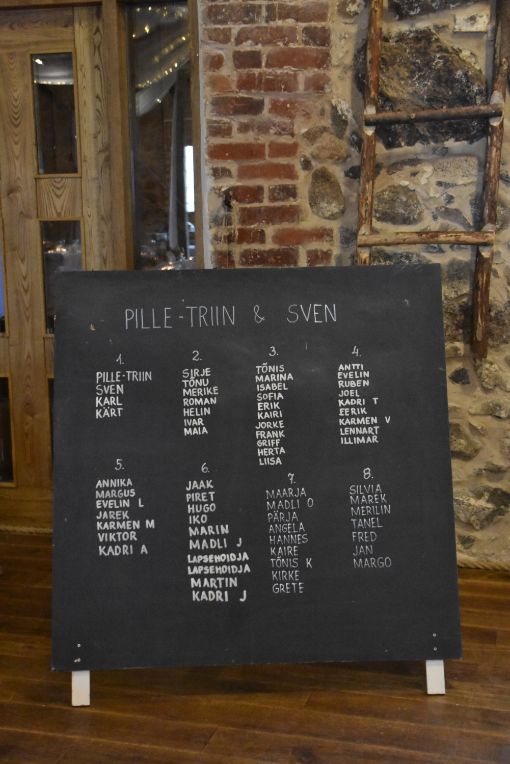 PILLE-TRIIN & SVEN
1.
PILLE-TRIIN
SVEN
KARL
KÄRT
2.
SIRJE
TÕNU
MERIKE
ROMAN
HELIN
IVAR
MAIA
3.
TÕNIS
MARINA
ISABEL
SOFIA
ERIK
KAIRI
JORKE
FRANK
GRIFF
HERTA
LIISA
4.
ANTTI
EVELIN
RUBEN
JOEL
KADRI T
EERIK
KARMEN V
LENNART
ILLIMAR
5.
ANNIKA
MARGUS
EVELIN L
JAREK
KARMEN M
VIKTOR
KADRI A
6.
JAAK
PIRET
HUGO
IKO
MARIN
MADLI J
LAPSEHOIDJA
LAPSEHOIDJA
MARTIN
KADRI J
7.
MAARJA
MADLI O
PÄRJA
ANGELA
HANNES
KAIRE
TÕNIS K
KIRKE
GRETE
8.
SILVIA
MAREK
MERILIN
TANEL
FRED
JAN
MARGO